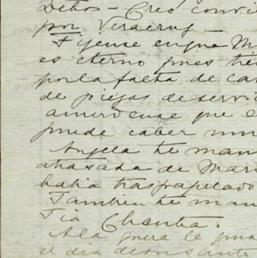 Debo - Creo convi
por Veracruz -
Fijense en que M
es eterno pues
por la falta de ca
de piezas de servi
que e
puede caber un
Angela te man
atrasada de Mari
habia traspapelado
Tambien te man
Tia Chonita.
A la
el dia